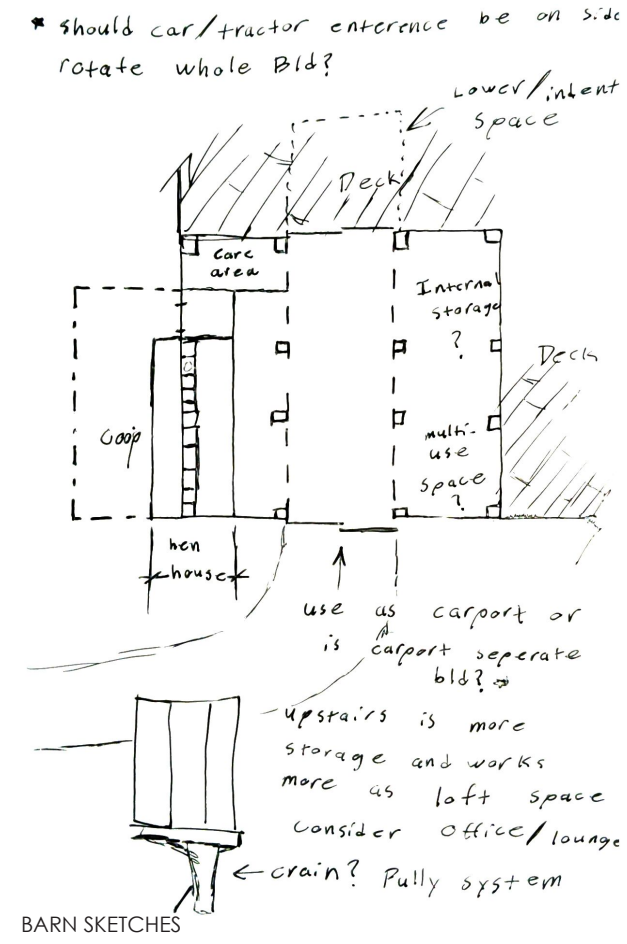 * should car/tractor enterence be on side
rotate whole Bld?
Lower/indent
space
Deck
Care
area
Internal
storage
?
Deck
coop
multi-
use
space
?
hen
house
use as carport or
is carport seperate
bld?
upstairs is more
storage and works
more as loft space
consider office/lounge
crain? Pully system
BARN SKETCHES